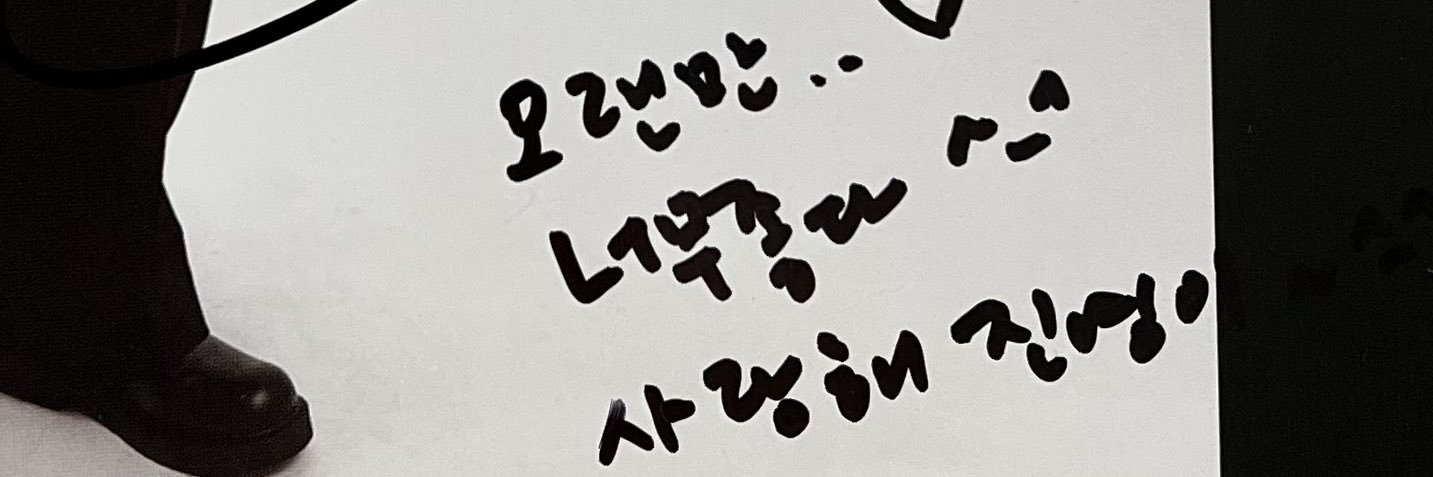 오랜만.. ^_^
너무좋다
사랑해 진영이